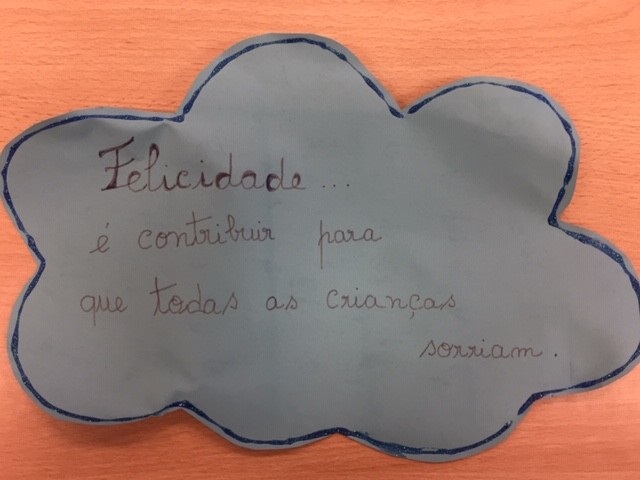 Felicidade...
é contribuir para
que todas as crianças
sorriam.